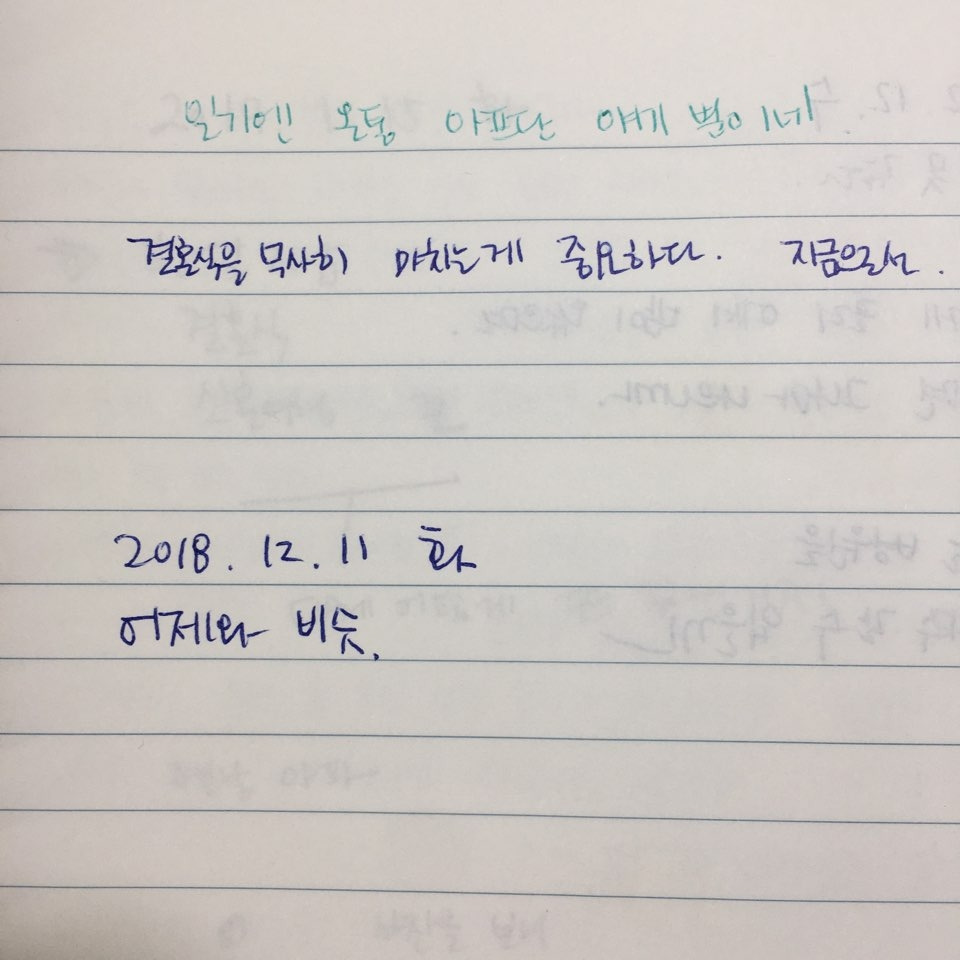 일기엔 온통 아프단 얘기 뿐이네
결혼식을 무사히 마치는게 중요하다. 지금으로선.
2018. 12. 11 화
어제와 비슷.